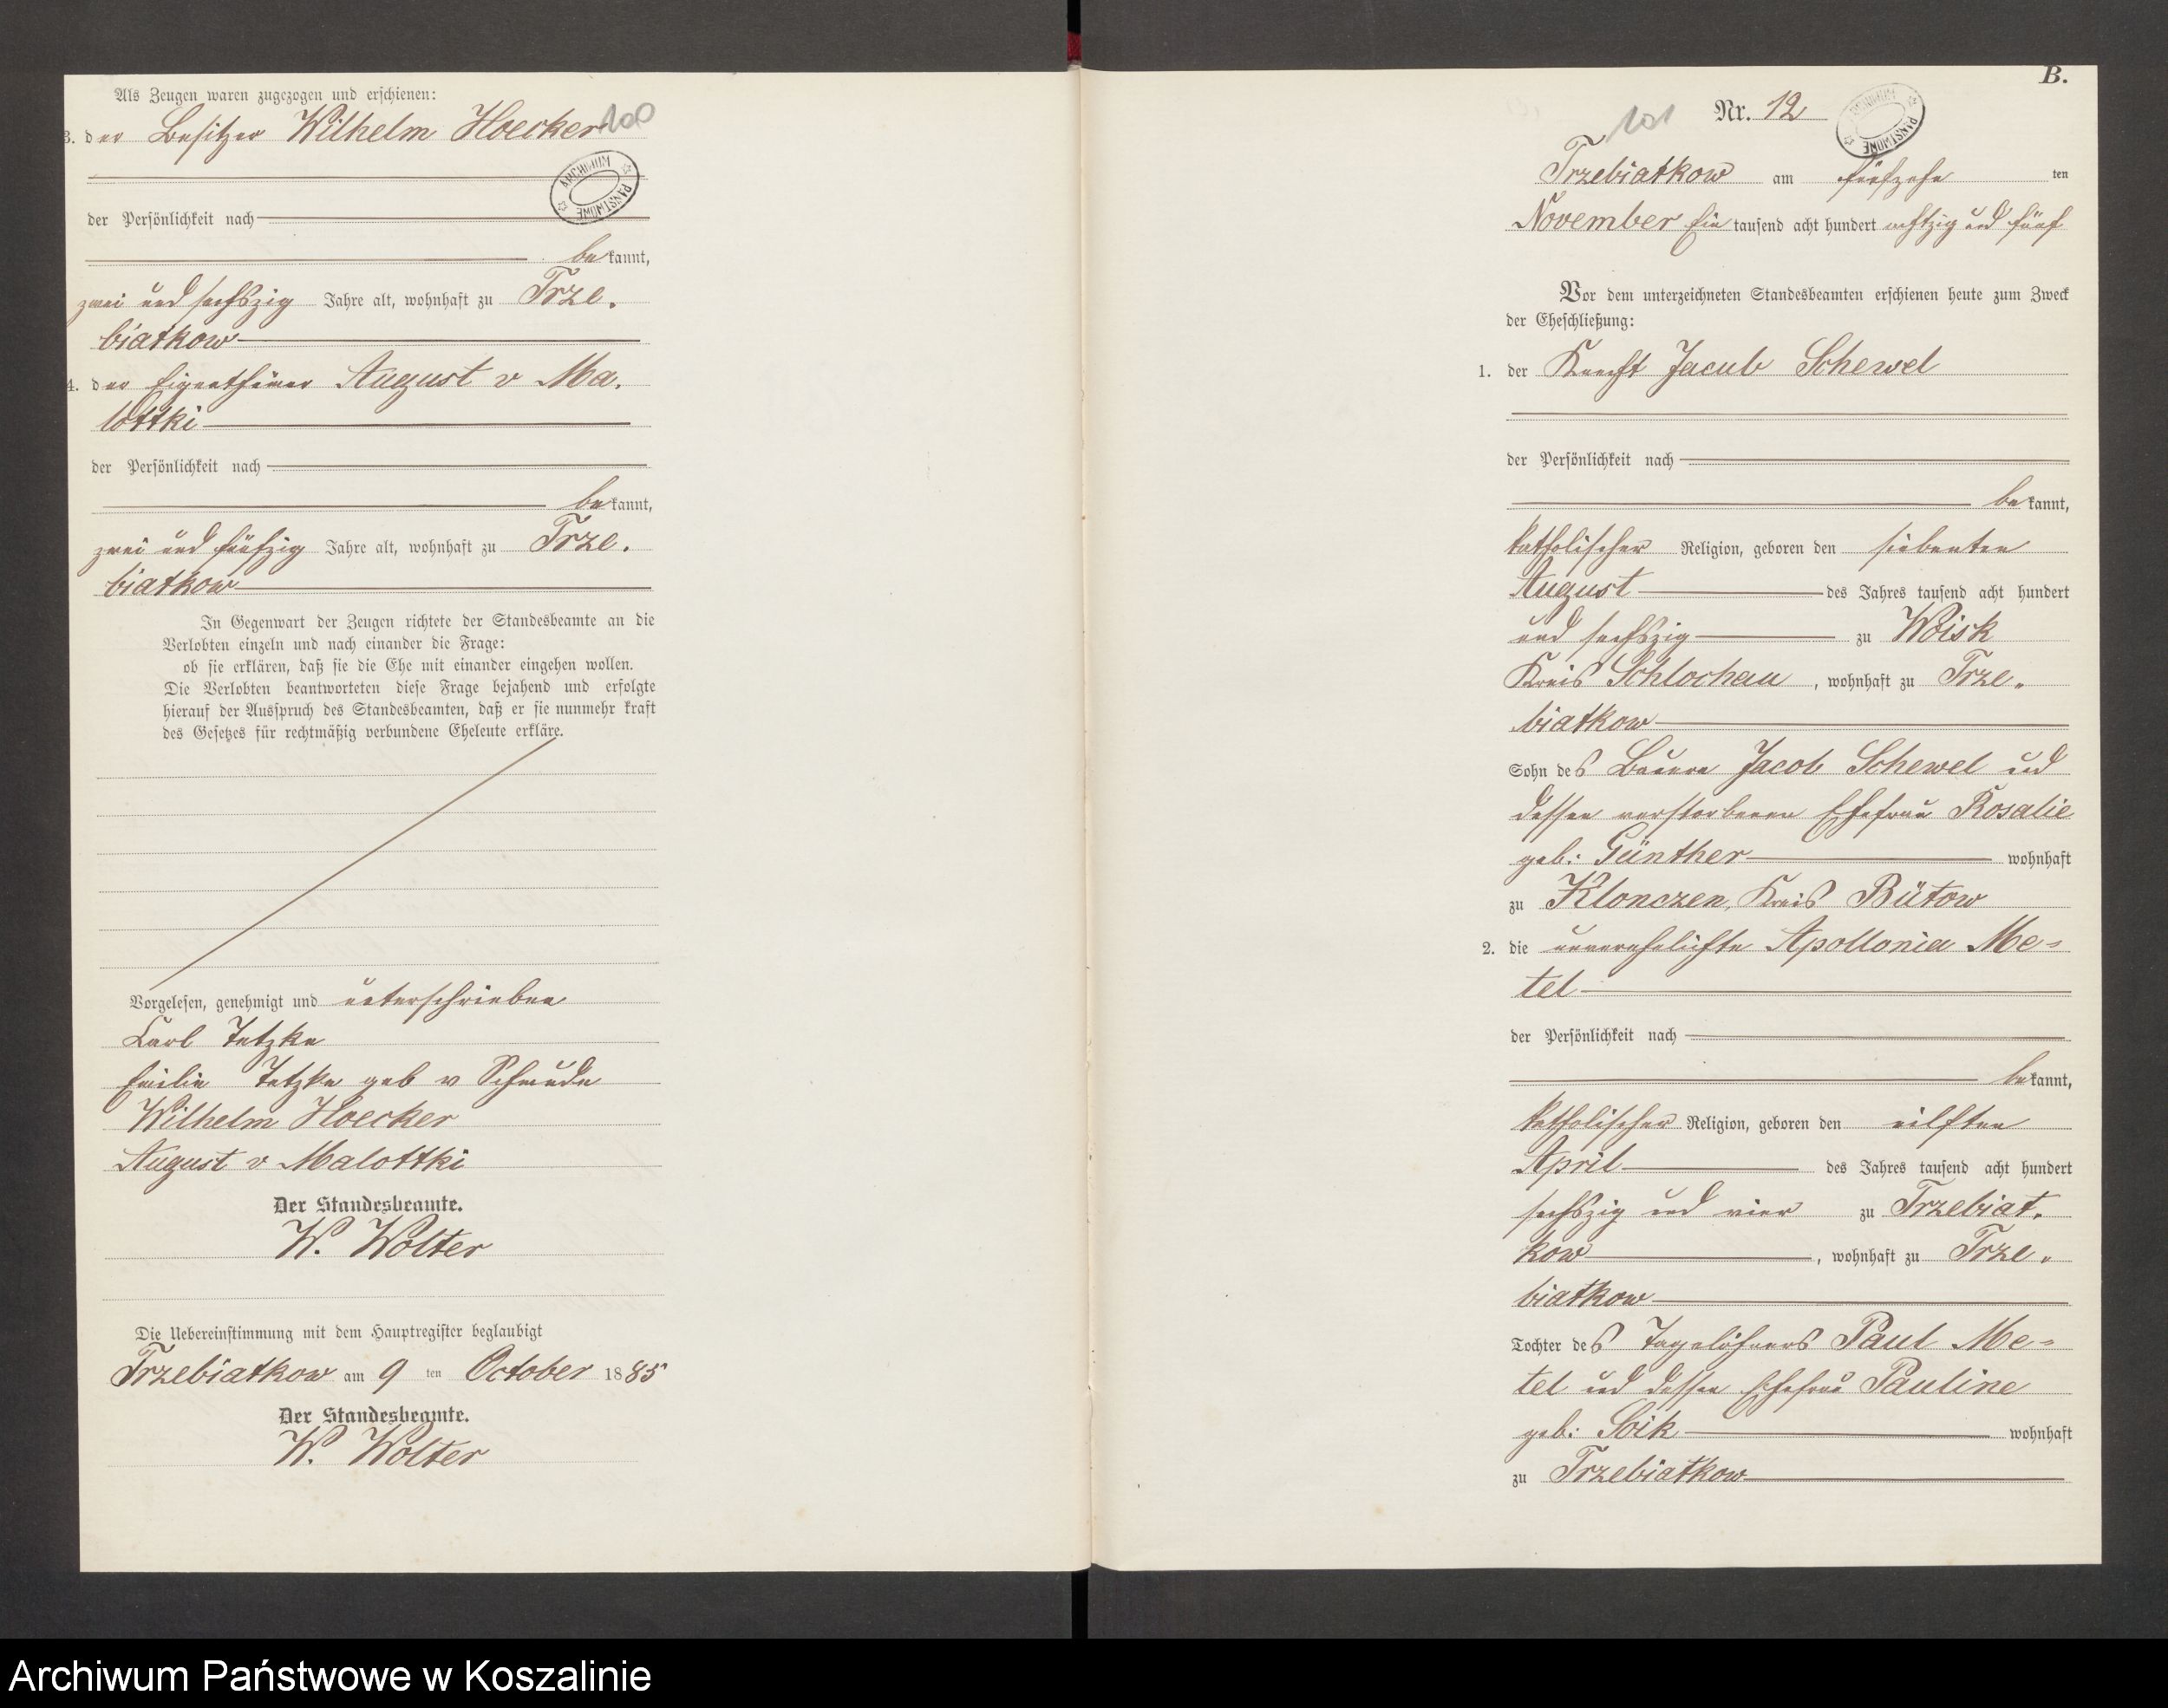 Als Zeugen waren zugezogen und erschienen:
3. der Besitzer Wilhelm Hoecker 100
ARCHIWUM PAŃSTWOWE
der Persönlichkeit nach
bekannt,
zwei und sechszig Jahre alt, wohnhaft zu Trze.
biatkow
4. der Eigenthümer August v Ma.
lottki
der Persönlichkeit nach
bekannt,
zwei und fünfzig Jahre alt, wohnhaft zu Trze.
biatkow
In Gegenwart der Zeugen richtete der Standesbeamte an die
Verlobten einzeln und nach einander die Frage:
ob sie erklären, daß sie die Ehe mit einander eingehen wollen.
Die Verlobten beantworteten diese Frage bejahend und erfolgte
hierauf der Ausspruch des Standesbeamten, daß er sie nunmehr kraft
des Gesetzes für rechtmäßig verbundene Eheleute erkläre.
Vorgelesen, genehmigt und unterschrieben
Carl Tetzke
Emilie Tetzke geb v Schmude
Wilhelm Hoecker
August v Malottki
Der Standesbeamte.
W. Wolter
Die Uebereinstimmung mit dem Hauptregister beglaubigt
Trzebiatkow am 9 ten October 1885
Der Standesbeamte.
W. Wolter
B.
101 Nr. 12
ARCHIWUM PAŃSTWOWE
Trzebiatkow am fünfzehn ten
November Ein tausend acht hundert achtzig und fünf
Vor dem unterzeichneten Standesbeamten erschienen heute zum Zweck
der Eheschließung:
1. der Knecht Jacub Schewel
der Persönlichkeit nach
bekannt,
katholischer Religion, geboren den siebenten
August des Jahres tausend acht hundert
und sechszig zu Woisk
Kreis Schlochau, wohnhaft zu Trze.
biatkow
Sohn des Bauern Jacob Schewel und
dessen verstorbenen Ehefrau Rosalie
geb. Günther wohnhaft
zu Klonczen, Kreis Bütow
2. die unverehelichte Apollonia Me=
tel
der Persönlichkeit nach
bekannt,
katholischer Religion, geboren den eilften
April des Jahres tausend acht hundert
sechszig und vier zu Trzebiat.
kow, wohnhaft zu Trze.
biatkow
Tochter des Tagelöhners Paul Me=
tel und dessen Ehefrau Pauline
geb: Soik wohnhaft
zu Trzebiatkow
Archiwum Państwowe w Koszalinie